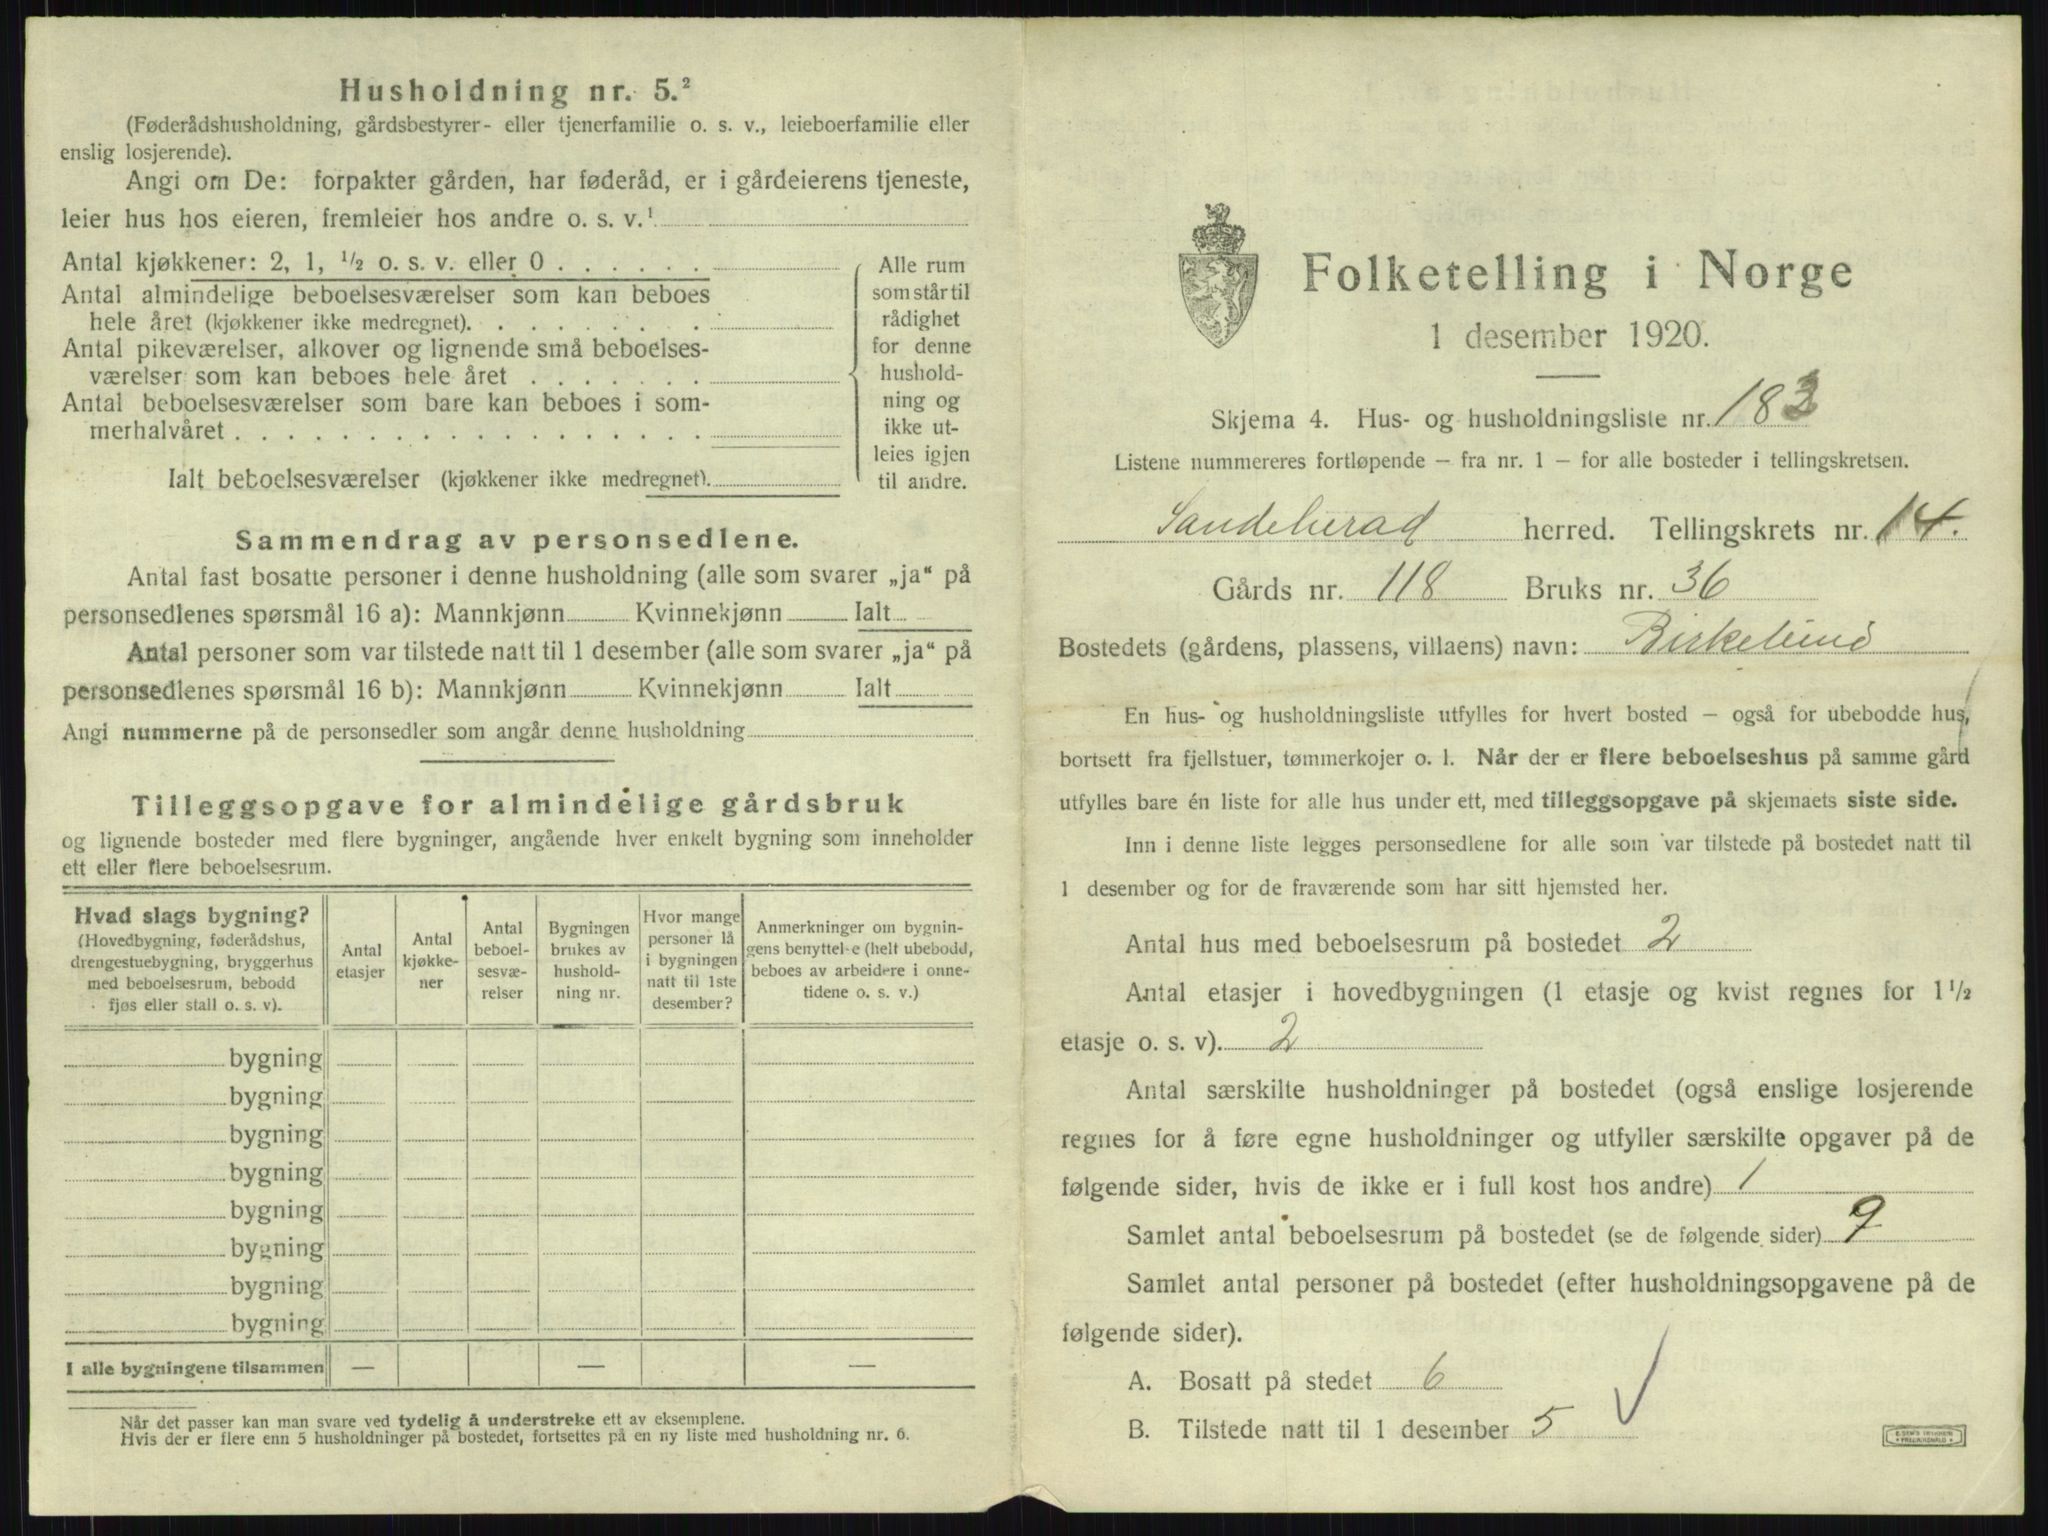 Husholdning nr. 5.²
(Føderådshusholdning, gårdsbestyrer- eller tjenerfamilie o. s. v., leieboerfamilie eller
enslig losjerende).
Angi om De: forpakter gården, har føderåd, er i gårdeierens tjeneste,
leier hus hos eieren, fremleier hos andre o. s. v.¹
Antal kjøkkener: 2, 1, ½ o. s. v. eller 0 . . . . . .
Antal almindelige beboelsesværelser som kan beboes
hele året (kjøkkener ikke medregnet). . . . . . . . .
Antal pikeværelser, alkover og lignende små beboelses-
værelser som kan beboes hele året . . . . . . .
Antal beboelsesværelser som bare kan beboes i som-
merhalvåret . . . . . . . . . . . . . . . . . .
Ialt beboelsesværelser (kjøkkener ikke medregnet).
Alle rum
som står til
rådighet
for denne
hushold-
ning og
ikke ut-
leies igjen
til andre.
Sammendrag av personsedlene.
Antal fast bosatte personer i denne husholdning (alle som svarer „ja“ på
personsedlenes spørsmål 16 a): Mannkjønn Kvinnekjønn Ialt
Antal personer som var tilstede natt til 1 desember (alle som svarer „ja“ på
personsedlenes spørsmål 16 b): Mannkjønn Kvinnekjønn Ialt
Angi nummerne på de personsedler som angår denne husholdning
Tilleggsopgave for almindelige gårdsbruk
og lignende bosteder med flere bygninger, angående hver enkelt bygning som inneholder
ett eller flere beboelsesrum.
Hvad slags bygning?
(Hovedbygning, føderådshus,
drengestuebygning, bryggerhus
med beboelsesrum, bebodd
fjøs eller stall o. s. v).
Antal
etasjer
Antal
kjøkke-
ner
Antal
beboel-
sesvæ-
relser
Bygningen
brukes av
hushold-
ning nr.
Hvor mange
personer lå
i bygningen
natt til 1ste
desember?
Anmerkninger om bygnin-
gens benyttelse (helt ubebodd,
beboes av arbeidere i onne-
tidene o. s. v.)
bygning
bygning
bygning
bygning
bygning
bygning
bygning
bygning
I alle bygningene tilsammen — — —
Når det passer kan man svare ved tydelig å understreke ett av eksemplene.
Hvis der er flere enn 5 husholdninger på bostedet, fortsettes på en ny liste med husholdning nr. 6.
Folketelling i Norge
1 desember 1920.
Skjema 4. Hus- og husholdningsliste nr. 183
Listene nummereres fortløpende — fra nr. 1 — for alle bosteder i tellingskretsen.
Sandeherad herred. Tellingskrets nr. 14.
Gårds nr. 118 Bruks nr. 36
Bostedets (gårdens, plassens, villaens) navn: Birkelund
En hus- og husholdningsliste utfylles for hvert bosted — også for ubebodde hus,
bortsett fra fjellstuer, tømmerkojer o. l. Når der er flere beboelseshus på samme gård
utfylles bare én liste for alle hus under ett, med tilleggsopgave på skjemaets siste side.
Inn i denne liste legges personsedlene for alle som var tilstede på bostedet natt til
1 desember og for de fraværende som har sitt hjemsted her.
Antal hus med beboelsesrum på bostedet 2
Antal etasjer i hovedbygningen (1 etasje og kvist regnes for 1½
etasje o. s. v). 2
Antal særskilte husholdninger på bostedet (også enslige losjerende
regnes for å føre egne husholdninger og utfyller særskilte opgaver på de
følgende sider, hvis de ikke er i full kost hos andre) 1
Samlet antal beboelsesrum på bostedet (se de følgende sider) 9
Samlet antal personer på bostedet (efter husholdningsopgavene på de
følgende sider).
A. Bosatt på stedet 6
B. Tilstede natt til 1 desember 5